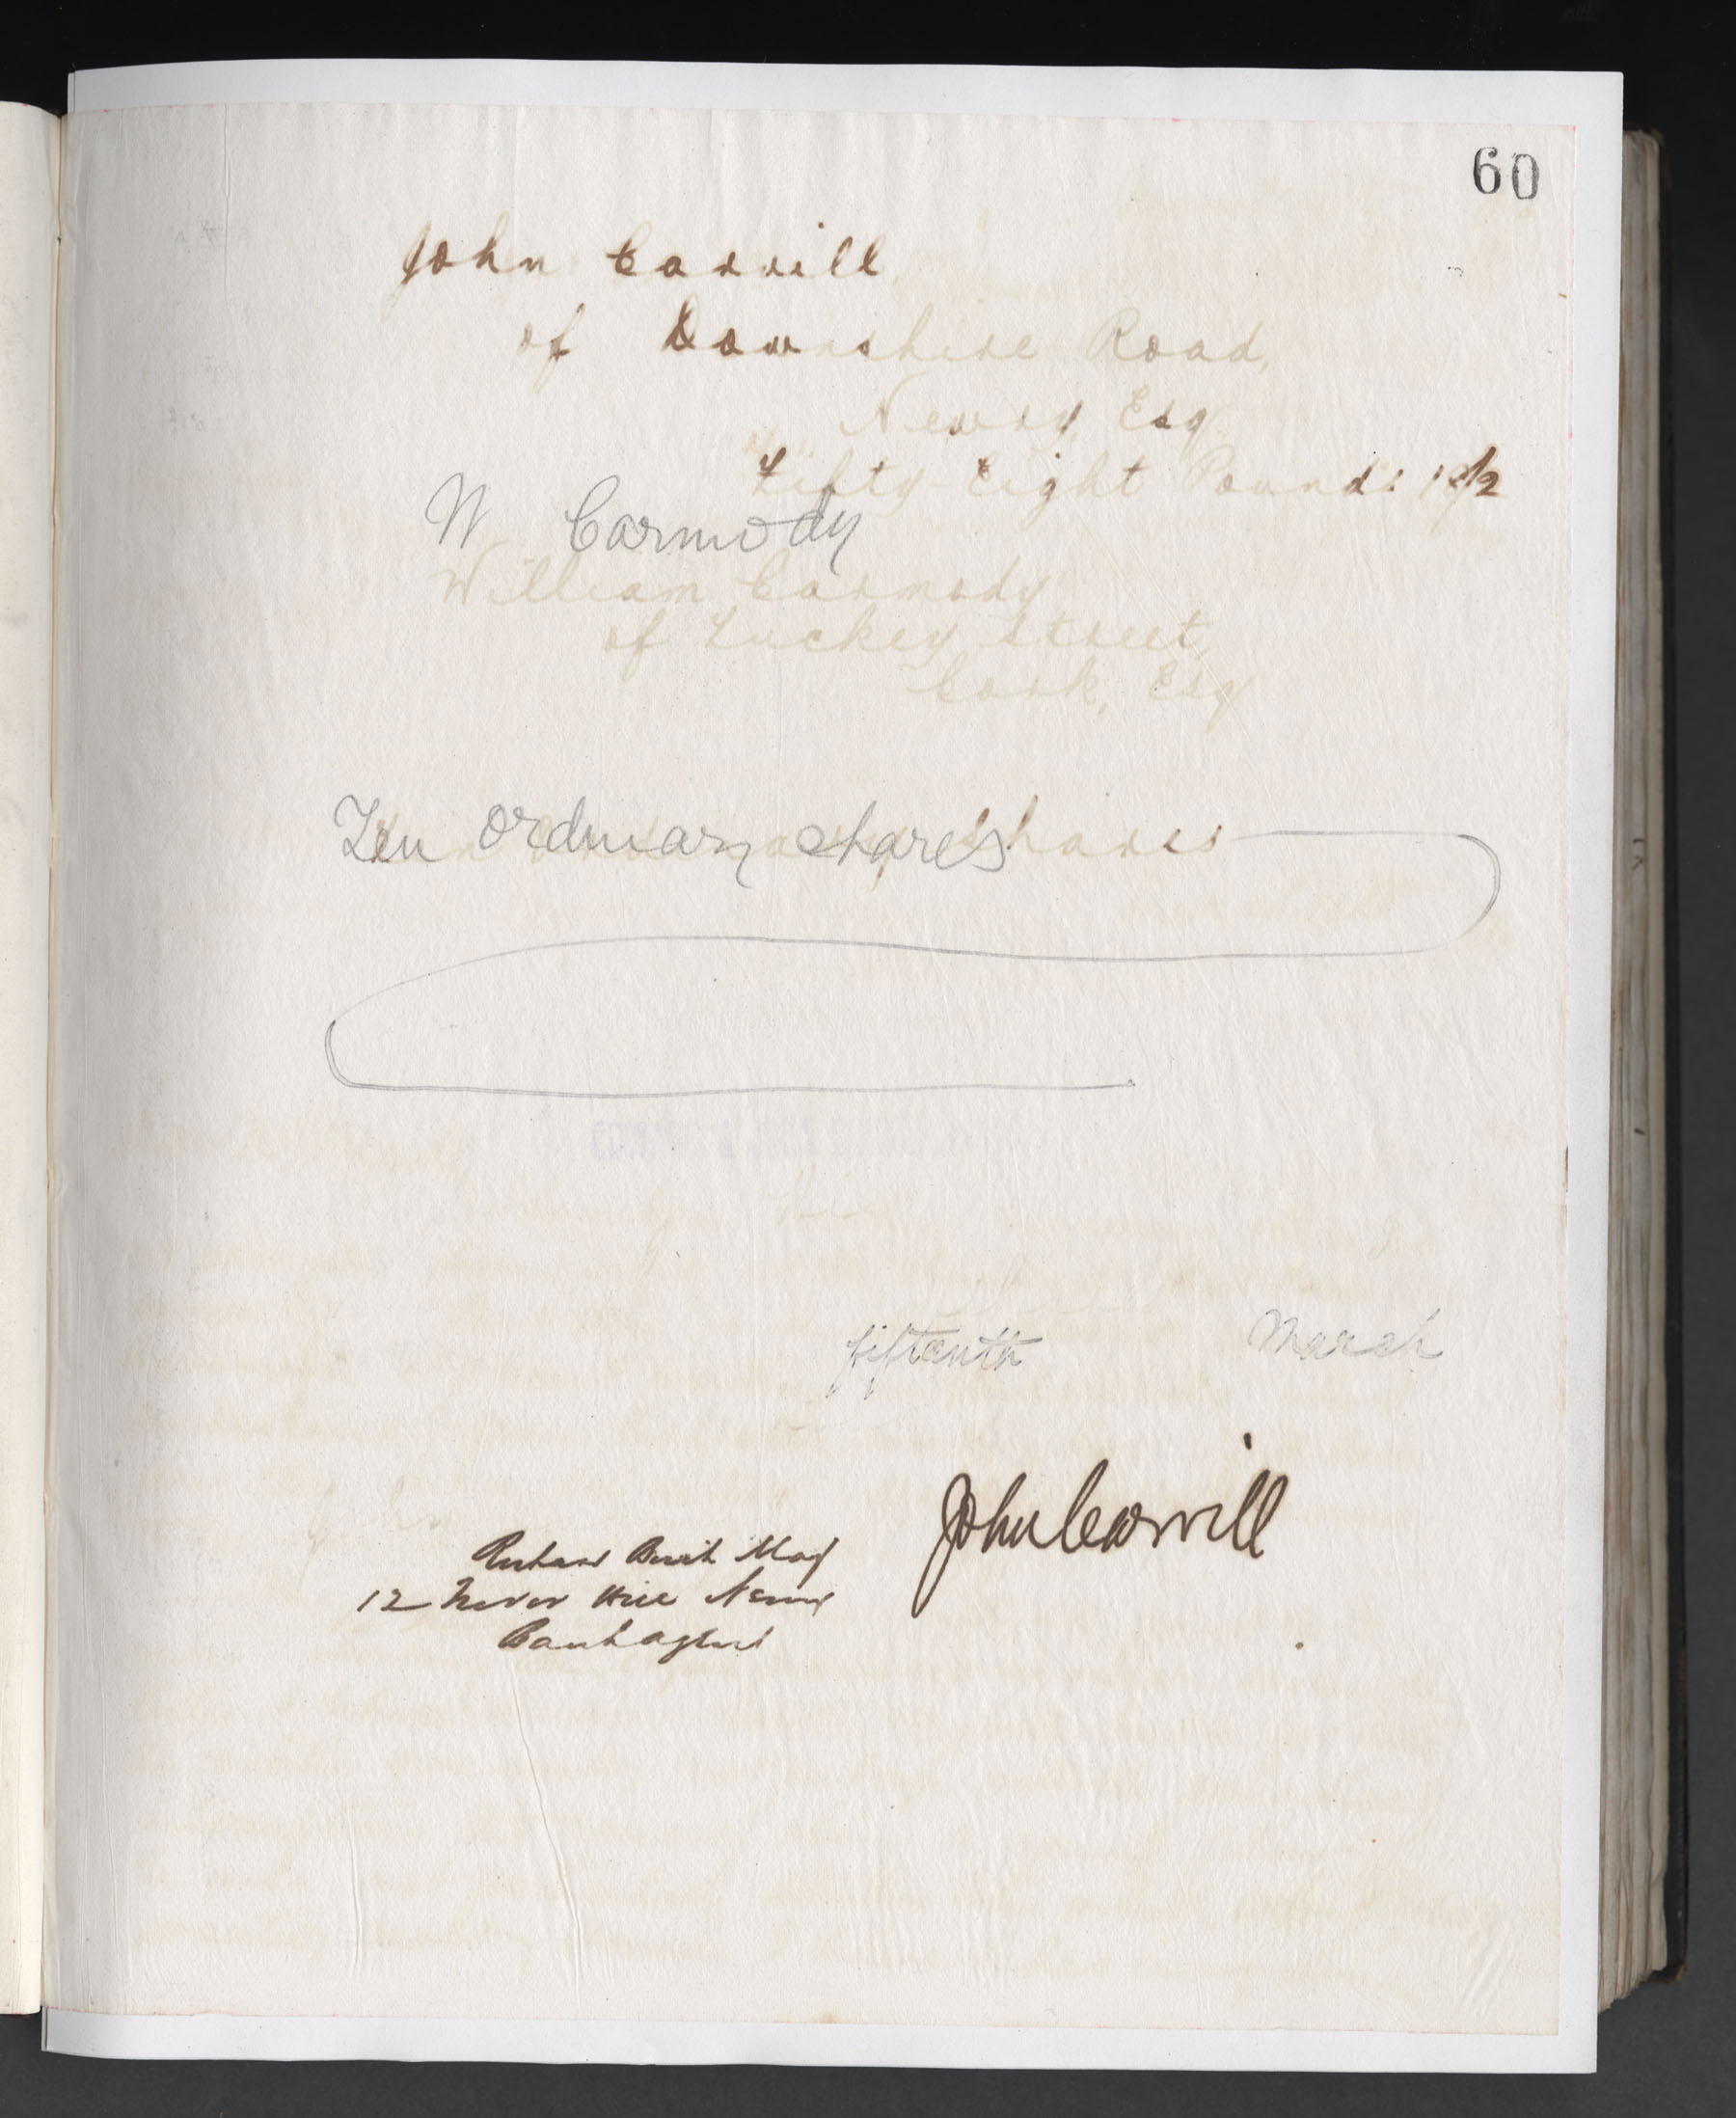 60
John Carvill
of Downshire Road,
Newry Esq
Fifty-Eight Pounds
W Carmody
William Carmody
of Tuckey Street,
Cork, Esq
Ten Ordinary shares Shares
fifteenth March
John Carvill
12 Trevor Hill Newry
Bank Agent